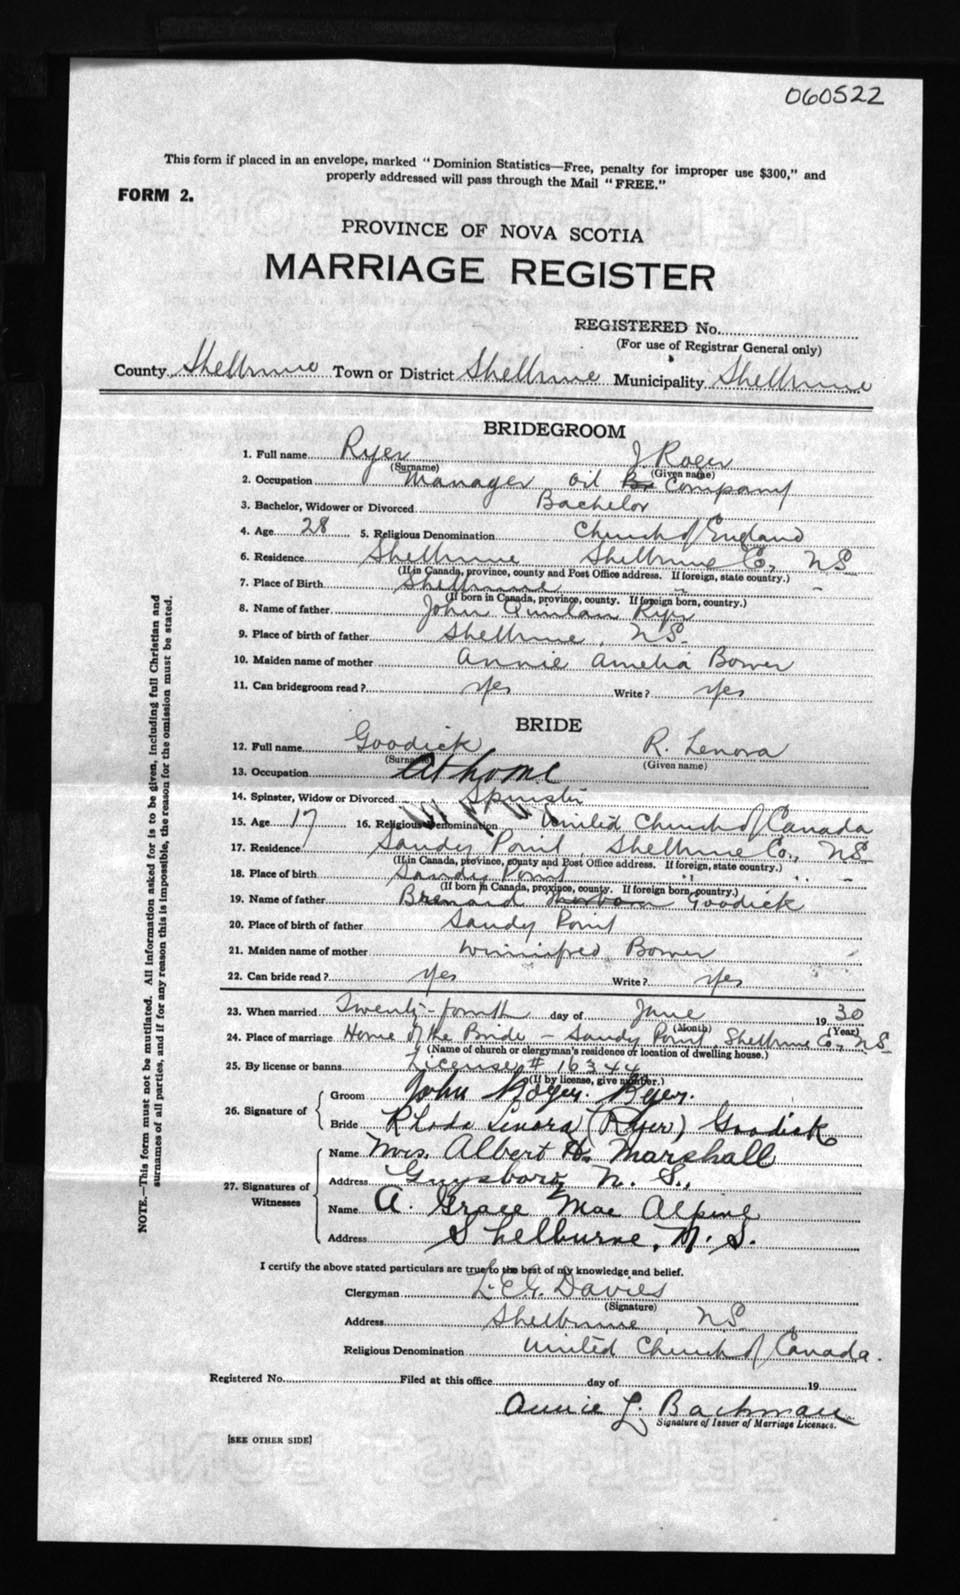 060522
This form if placed in an envelope, marked "Dominion Statistics—Free, penalty for improper use $300," and
properly addressed will pass through the Mail "FREE."
FORM 2.
PROVINCE OF NOVA SCOTIA
MARRIAGE REGISTER
REGISTERED No.
(For use of Registrar General only)
County Shelburne Town or District Shelburne Municipality Shelburne
BRIDEGROOM
1. Full name Ryer J Roger
(Surname) (Given name)
2. Occupation Manager oil Company
3. Bachelor, Widower or Divorced Bachelor
4. Age 28 5. Religious Denomination Church of England
6. Residence Shelburne Shelburne Co., N.S.
(If in Canada, province, county and Post Office address. If foreign, state country.)
7. Place of Birth Shelburne " "
(If born in Canada, province, county. If foreign born, country.)
8. Name of father John Quinlan Ryer
9. Place of birth of father Shelburne, N.S.
10. Maiden name of mother Annie Amelia Bower
11. Can bridegroom read? yes Write? yes
BRIDE
12. Full name Goodick R. Lenora
(Surname) (Given name)
13. Occupation At home
14. Spinster, Widow or Divorced Spinster
15. Age 17 16. Religious Denomination United Church of Canada
17. Residence Sandy Point, Shelburne Co., N.S.
(If in Canada, province, county and Post Office address. If foreign, state country.)
18. Place of birth Sandy Point " "
(If born in Canada, province, county. If foreign born, country.)
19. Name of father Brenard Goodick
20. Place of birth of father Sandy Point
21. Maiden name of mother Winnifred Bower
22. Can bride read? yes Write? yes
23. When married Twenty-fourth day of June 1930
(Month) (Year)
24. Place of marriage Home of the Bride - Sandy Point, Shelburne Co., N.S.
(Name of church or clergyman's residence or location of dwelling house.)
25. By license or banns License # 16344
(If by license, give number.)
26. Signature of Groom John Roger Ryer.
Bride Rhoda Lenora (Ryer) Goodick
27. Signatures of Witnesses Name Mrs. Albert H. Marshall
Address Guysboro, N.S.,
Name A. Grace Mac Alpine
Address Shelburne, N.S.
I certify the above stated particulars are true to the best of my knowledge and belief.
Clergyman L. E. G. Davies
(Signature)
Address Shelburne, N.S.
Religious Denomination United Church of Canada.
Registered No. Filed at this office day of 19
Annie L. Bachman
Signature of Issuer of Marriage Licenses.
[SEE OTHER SIDE]
NOTE.—This form must not be mutilated. All information asked for is to be given, including full Christian and
surnames of all parties, and if for any reason this is impossible, the reason for the omission must be stated.